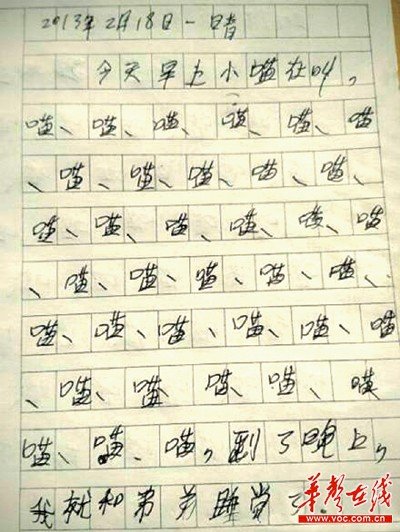 2013年2月18日一晴
今天早上小喵在叫，
喵、喵、喵、喵、喵、喵
、喵、喵、喵、喵、喵、
喵、喵、喵、喵、喵、喵
、喵、喵、喵、喵、喵、
喵、喵、喵、喵、喵、喵
、喵、喵 喵 喵、喵
喵、喵、喵，到了晚上，
我就和弟弟睡觉了.
华声在线
www.voc.com.cn